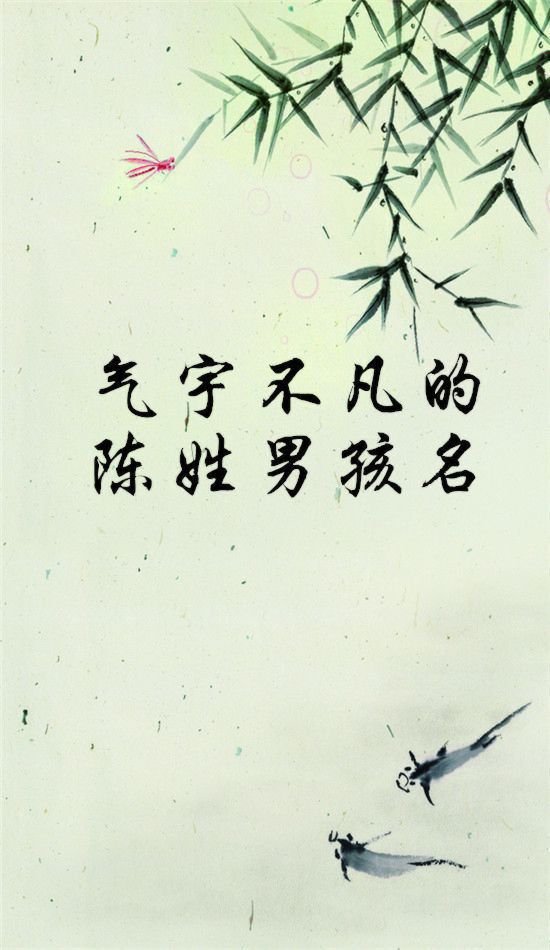 气宇不凡的
陈姓男孩名